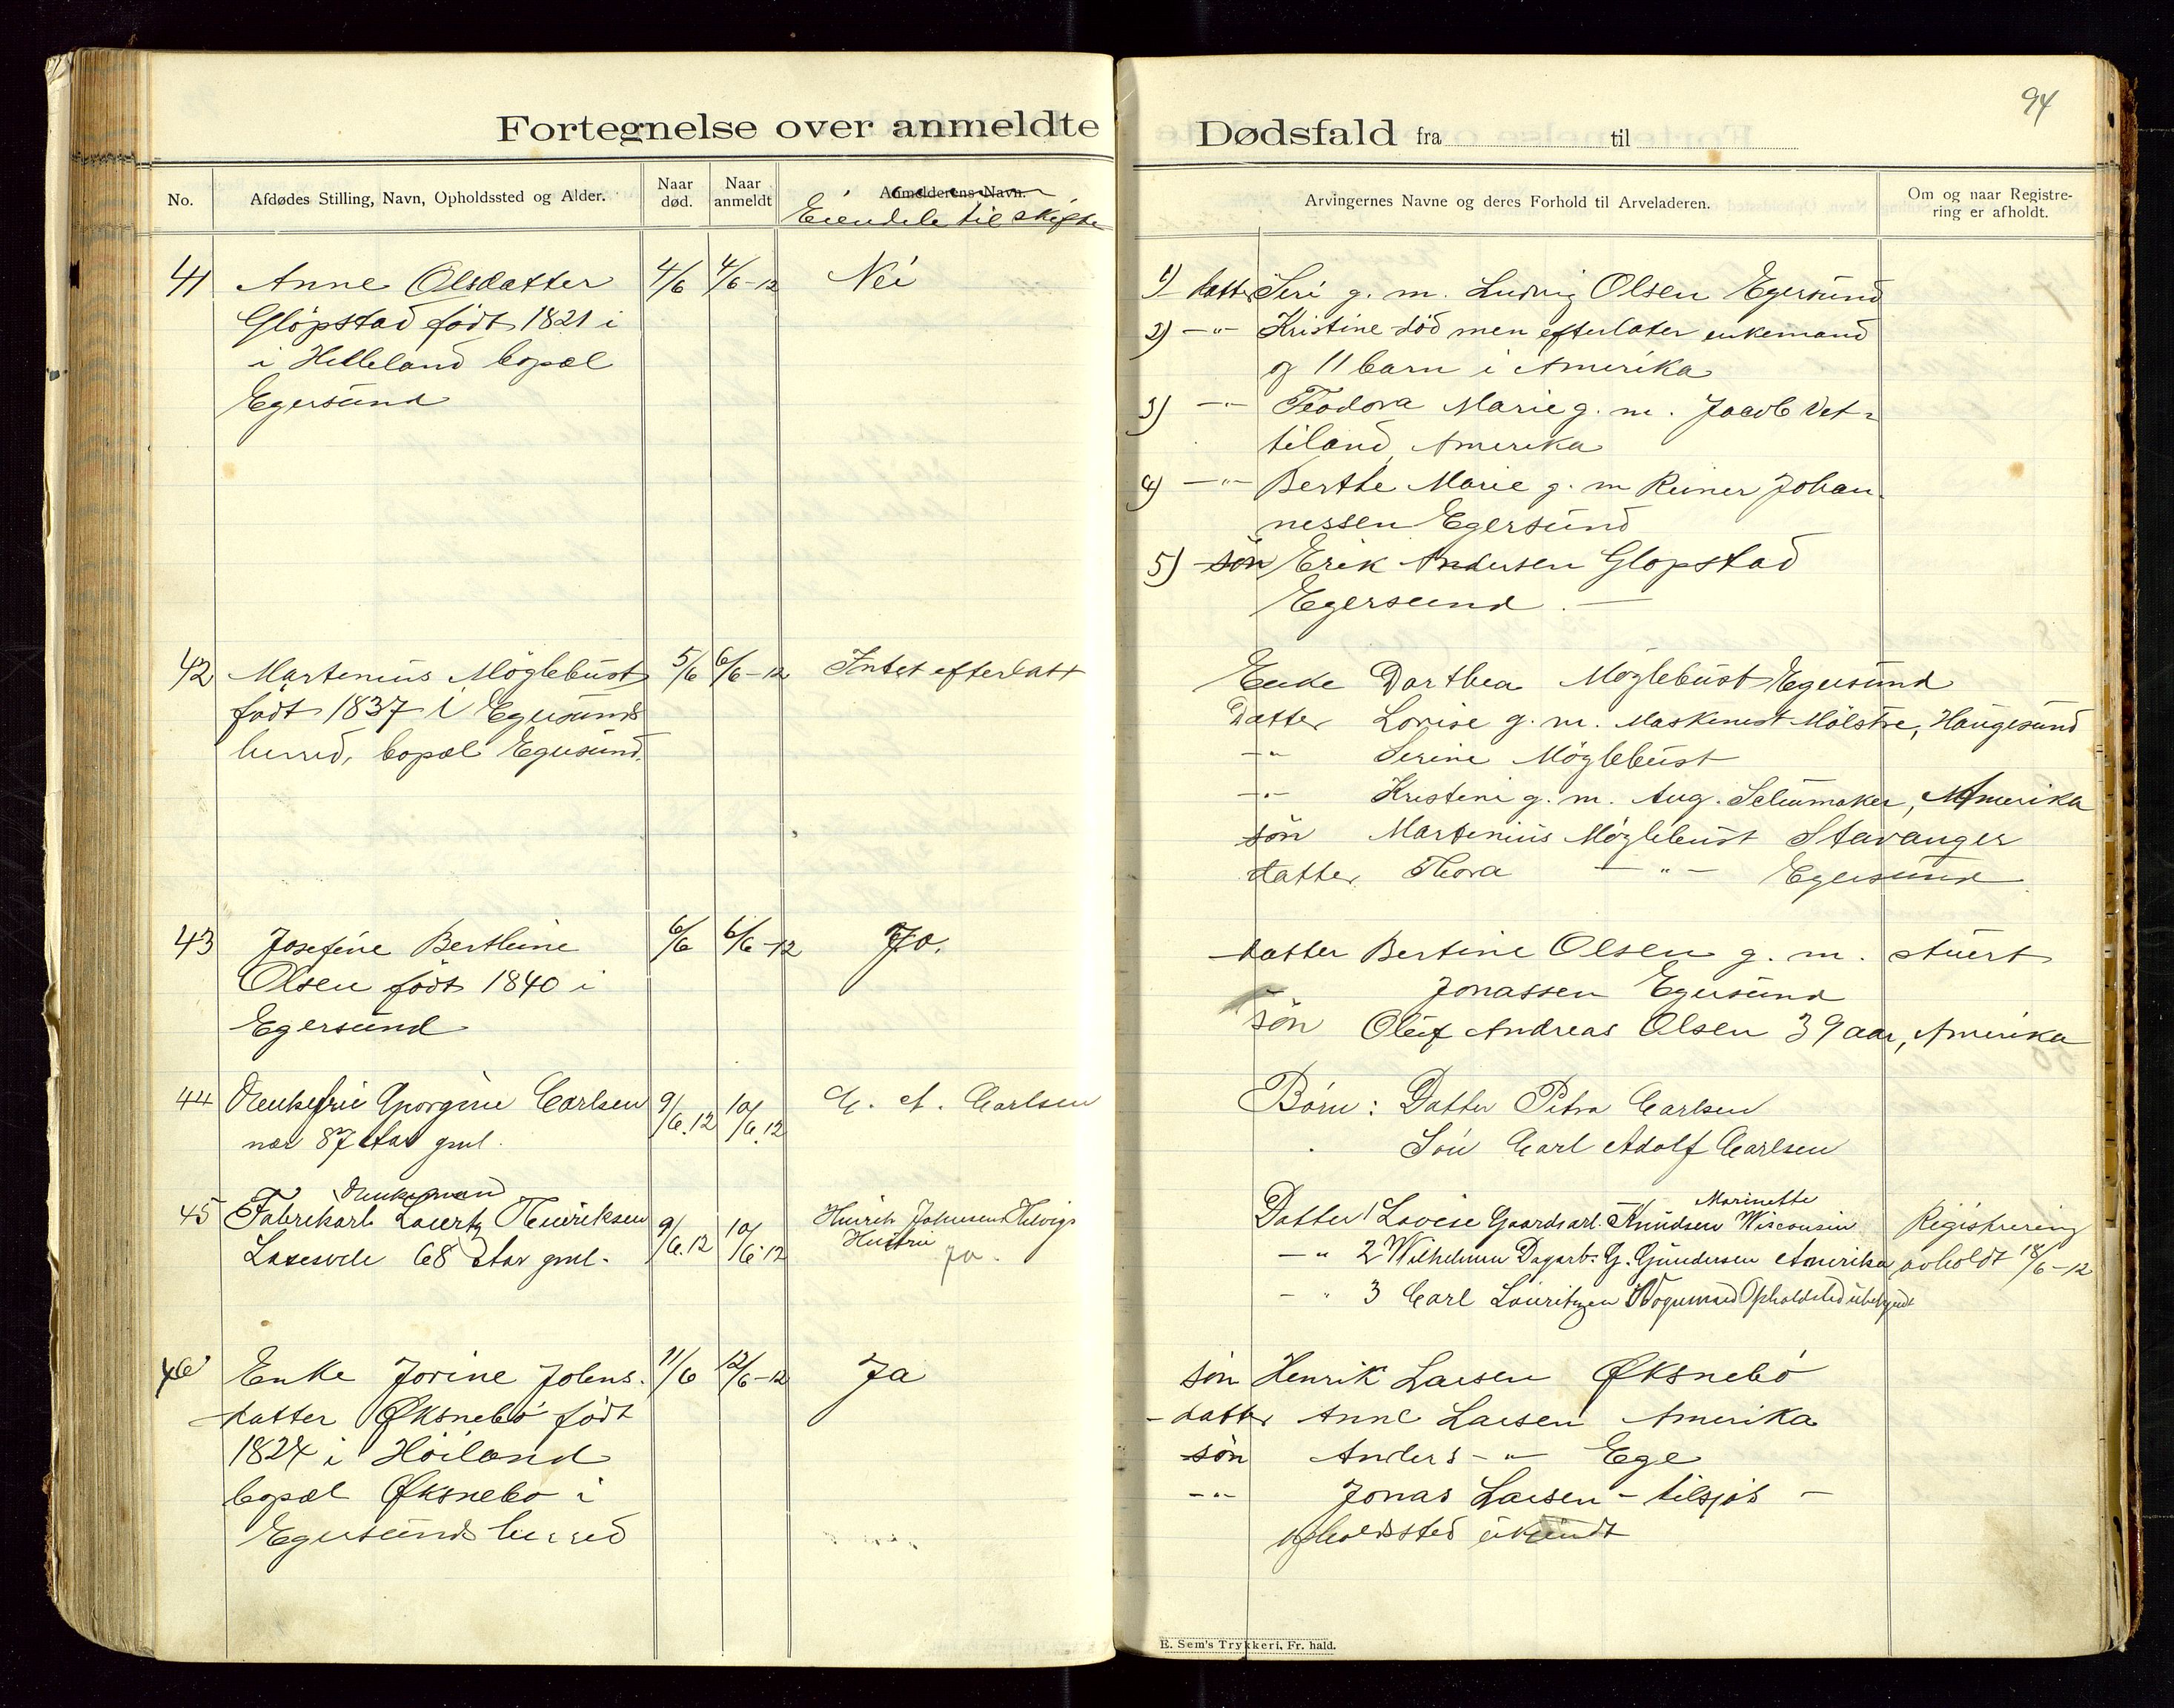 Fortegnelse over anmeldte
No.
Afdødes Stilling, Navn, Opholdssted og Alder.
Naar død.
Naar anmeldt
Anmelderens Navn.
Eiendele til skifte
41 Anne Olsdatter 4/6 4/6-12 Nei
Glöpstad födt 1821 i
i Helleland bopæl
Egersund
42 Martenius Möglebust 5/6 6/6-12 Intet efterlatt
födt 1837 i Egersunds
herred, bopæl Egersund.
43 Josefine Berthine 6/6 6/6-12 Jo.
Olsen födt 1840 i
Egersund
44 Georgine Carlsen 9/6.12 10/6.12 C. A. Carlsen
nær 87 Aar gml.
Enkemand
45 Fabrikarb. Lauertz Henriksen 9/6.12 10/6.12 Hinrik Johnsen Helvigs
68 Aar gml. Hustru
ja.
46 Enke Jorine Johns- 11/6 12/6-12 Ja
datter Øksnebö födt
1824 i Höiland
bopæl Øksnebö i
Egersunds herred
94
Dødsfald fra til
Arvingernes Navne og deres Forhold til Arveladeren.
Om og naar Registre-
ring er afholdt.
1) datter Seri g. m. Ludvig Olsen Egersund
2) -"- Kristine död men efterlater enkemand
og 11 barn i Amerika
3) -"- Teodora Marie g. m. Jacob Vet-
teland, Amerika
4) -"- Berthe Marie g. m Reiner Johan-
nessen Egersund
5) sön Erik Andersen Glopstad
Egersund. —
Enke Dorthea Möglebust Egersund
Datter Lovise g. m. Maskinist Mölstre, Haugesund
-"- Serine Möglebust
-"- Kristine g. m. Aug. Schumaker, Amerika
sön Martenius Möglebust Stavanger
datter Thora -"- Egersund
datter Bertine Olsen g. m. stuert
Jonassen Egersund
sön Oluf Andreas Olsen 39 aar, Amerika
Börn: Datter Petra Carlsen
Sön Carl Adolf Carlsen
Marinette
Datter 1 Lovise Gaardsarb. Knudsen Wisconsin Registrering
-" 2 Wilhelmine Dagarb. G. Gundersen Amerika avholdt 18/6-12
-" 3 Carl Lauritzen Opholdsted ubekjendt
sön Henrik Larsen Øksnebö
datter Anne Larsen Amerika
sön Anders -"- Ege
-"- Jonas Larsen - tilsjös -
opholdssted ukjendt
E. Sem's Trykkeri, Fr. hald.